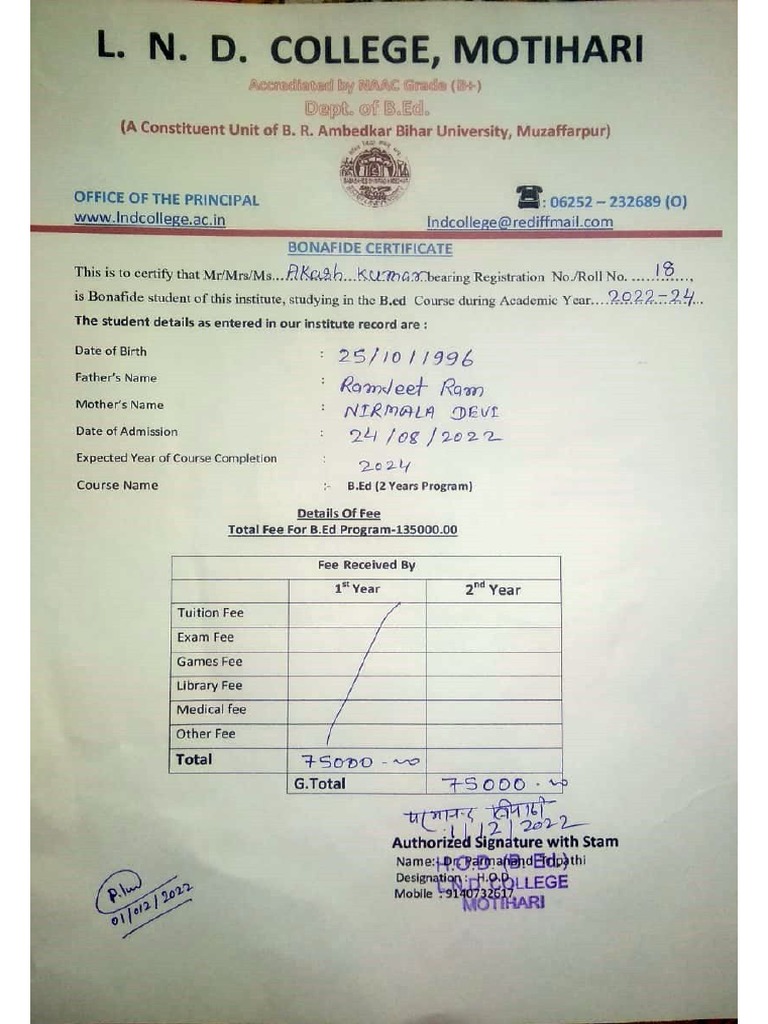 L. N. D. COLLEGE, MOTIHARI
Accrediated by NAAC Grade (B+)
Dept. of B.Ed.
(A Constituent Unit of B. R. Ambedkar Bihar University, Muzaffarpur)
OFFICE OF THE PRINCIPAL
☎: 06252 – 232689 (O)
www.lndcollege.ac.in
lndcollege@rediffmail.com
BONAFIDE CERTIFICATE
This is to certify that Mr/Mrs/Ms...Akash Kumar bearing Registration No./Roll No. ....18....,
is Bonafide student of this institute, studying in the B.ed Course during Academic Year....2022-24..
The student details as entered in our institute record are :
Date of Birth : 25/10/1996
Father's Name : Ramjeet Ram
Mother's Name : NIRMALA DEVI
Date of Admission : 24/08/2022
Expected Year of Course Completion : 2024
Course Name :- B.Ed (2 Years Program)
Details Of Fee
Total Fee For B.Ed Program-135000.00
Fee Received By
1st Year 2nd Year
Tuition Fee
Exam Fee
Games Fee
Library Fee
Medical fee
Other Fee
Total 75000.00
G.Total 75000.00
परमानन्द त्रिपाठी
1/12/2022
Authorized Signature with Stam
Name:- Dr. Parmanand Tripathi
H.O.D. (B. Ed.)
Designation : H.O.D
L.N.D. COLLEGE
Mobile : 9140732617
MOTIHARI
01/012/2022